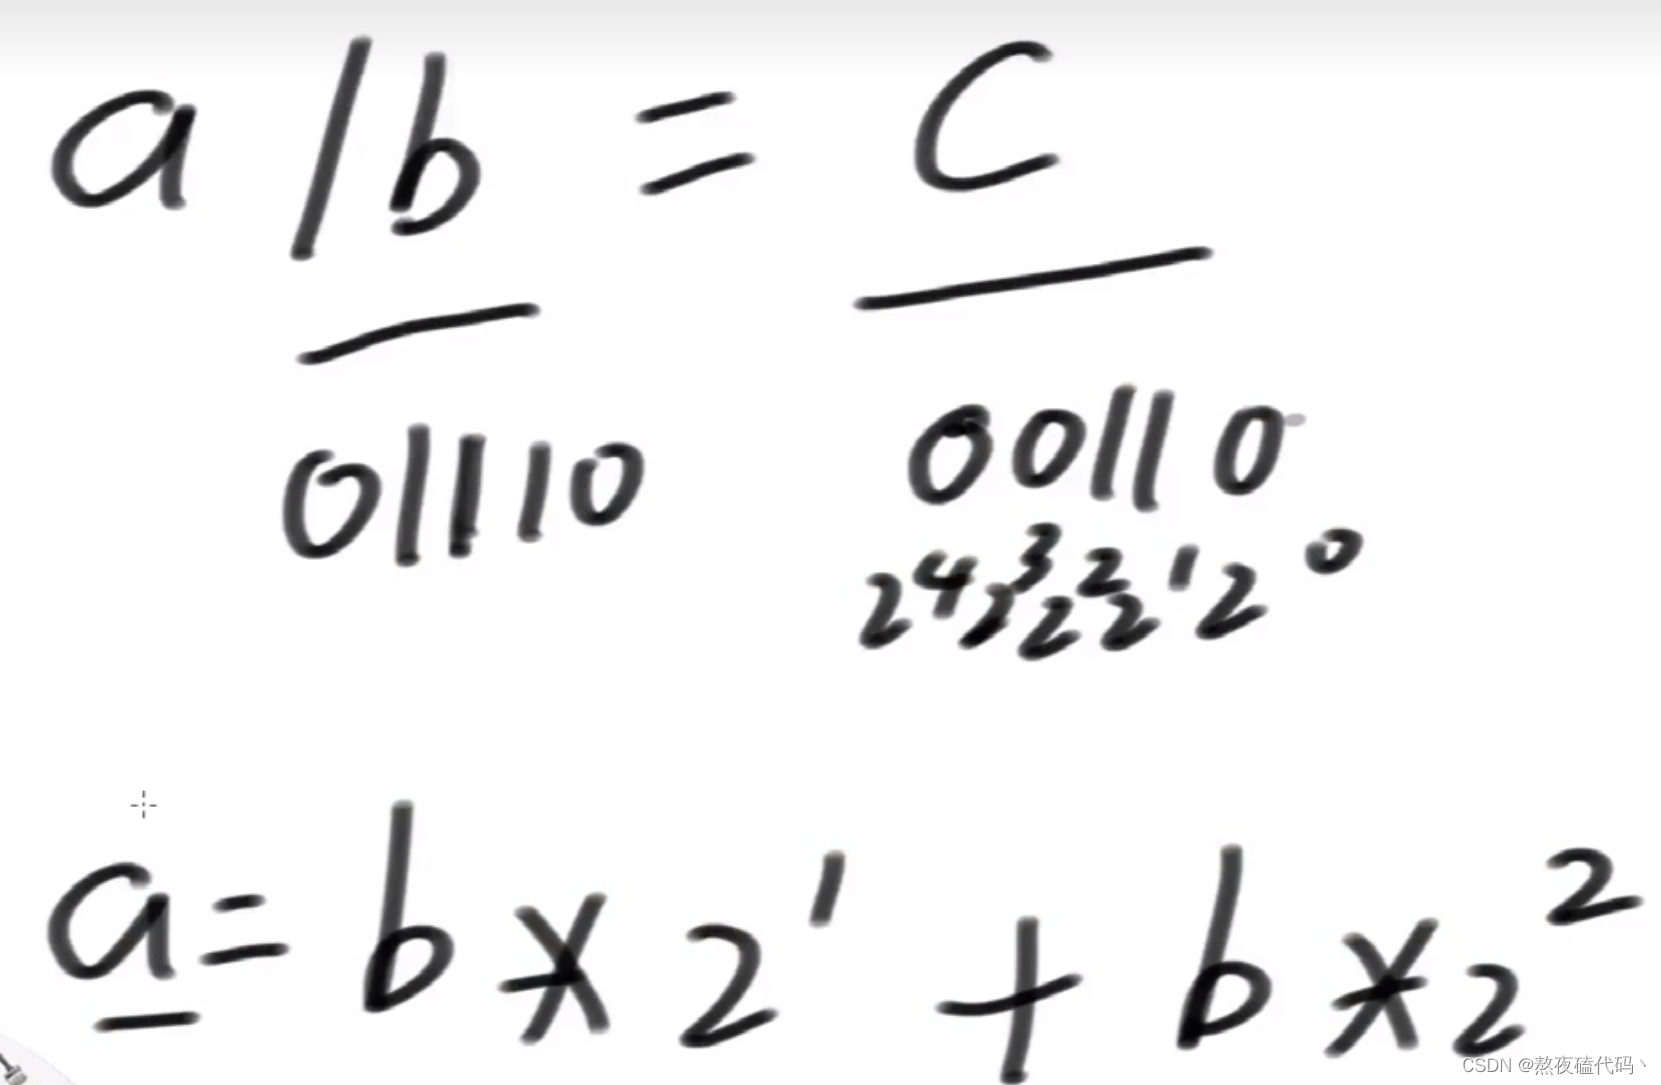 a / b = c
01110 00110
2⁴ 2³ 2² 2¹ 2⁰
a = b * 2¹ + b * 2²
CSDN @熬夜磕代码丶